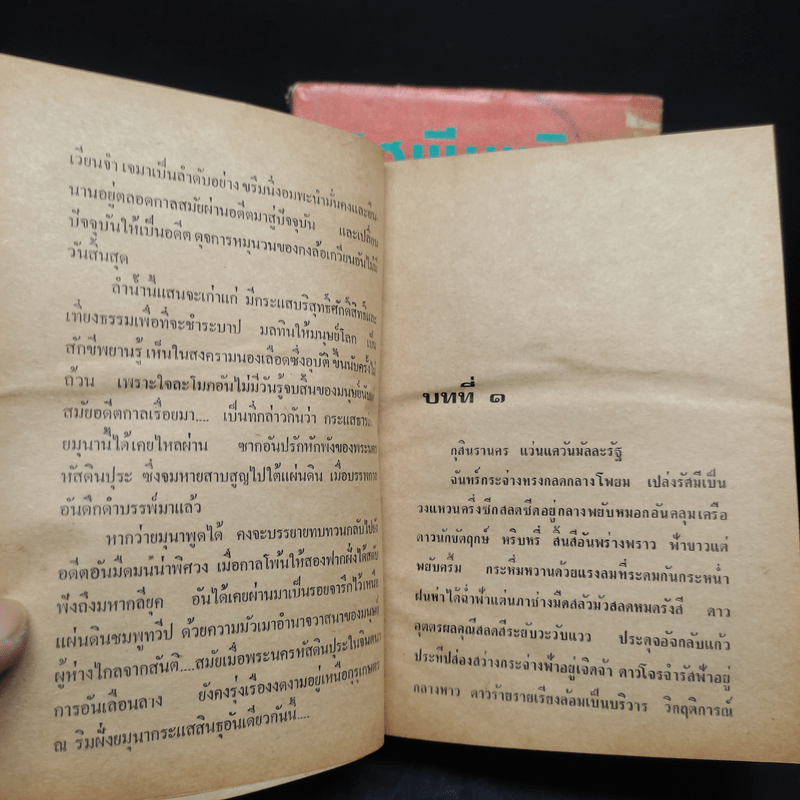 เวียนจำ เจมาเป็นลำดับอย่าง ขรึมนิ่งอมพะนำมั่นคงและยืน
นานอยู่ตลอดกาลสมัยผ่านอดีตมาสู่ปัจจุบัน และเปลี่ยน
ปัจจุบันให้เป็นอดีต ดุจการหมุนวนของกงล้อเกวียนอันไม่มี
วันสิ้นสุด
ลำน้ำนี้แสนจะเก่าแก่ มีกระแสบริสุทธิ์ศักดิ์สิทธิ์และ
เที่ยงธรรมเพื่อที่จะชำระบาป มลทินให้มนุษย์โลก เป็น
สักขีพยานรู้ เห็นในสงครามนองเลือดซึ่งอุบัติ ขึ้นนับครั้งไม่
ถ้วน เพราะใจละโมภอันไม่มีวันรู้จบสิ้นของมนุษย์นับแต่
สมัยอดีตกาลเรื่อยมา.... เป็นที่กล่าวกันว่า กระแสธาร
ยมุนานี้ได้เคยไหลผ่าน ซากอันปรักหักพังของพระนคร
หัสดินปุระ ซึ่งจมหายสาบสูญไปใต้แผ่นดิน เมื่อบรรพกาล
อันดึกดำบรรพ์มาแล้ว
หากว่ายมุนาพูดได้ คงจะบรรยายทบทวนกลับไปยัง
อดีตอันมืดมนน่าพิศวง เมื่อกาลโพ้นให้สองฟากฝั่งได้สดับ
ฟังถึงมหากลียุค อันได้เคยผ่านมาเป็นรอยจารึกไว้เหนือ
แผ่นดินชมพูทวีป ด้วยความมัวเมาอำนาจวาสนาของมนุษย์
ผู้ห่างไกลจากสันติ....สมัยเมื่อพระนครหัสดินปุระในจินตนา
การอันเลือนลาง ยังคงรุ่งเรืองงดงามอยู่เหนือกุรุเกษตร
ณ ริมฝั่งยมุนากระแสสินธุอันเดียวกันนี้....
บทที่ ๑
กุสินรานคร แว่นแควันมัลละรัฐ
จันทร์กระจ่างทรงกลดกลางโพยม เปล่งรัศมีเป็น
วงแหวนครึ่งซีกสลดซีดอยู่กลางพยับหมอกอันคลุมเครือ
ดาวนักขัตฤกษ์ หริบหรี่ สิ้นสีอันพร่างพราว ฟ้าขาวแต่
พยับครึ้ม กระหึ่มหวานด้วยแรงลมที่ระดมกันกระหน่ำ
ฝนห่าได้ฉ่ำฟ้าแต่นภาช่างมืดสลัวมัวสลดหมดรังสี ดาว
อุตตรผลคุณีสลดสีระยับวะวับแวว ประดุจอัจกลับแก้ว
ประทีปส่องสว่างกระจ่างฟ้าอยู่เจิดจ้า ดาวโจรจำรัสฟ้าอยู่
กลางหาว ดาวร้ายรายเรียงล้อมเป็นบริวาร วิกฤติการณ์